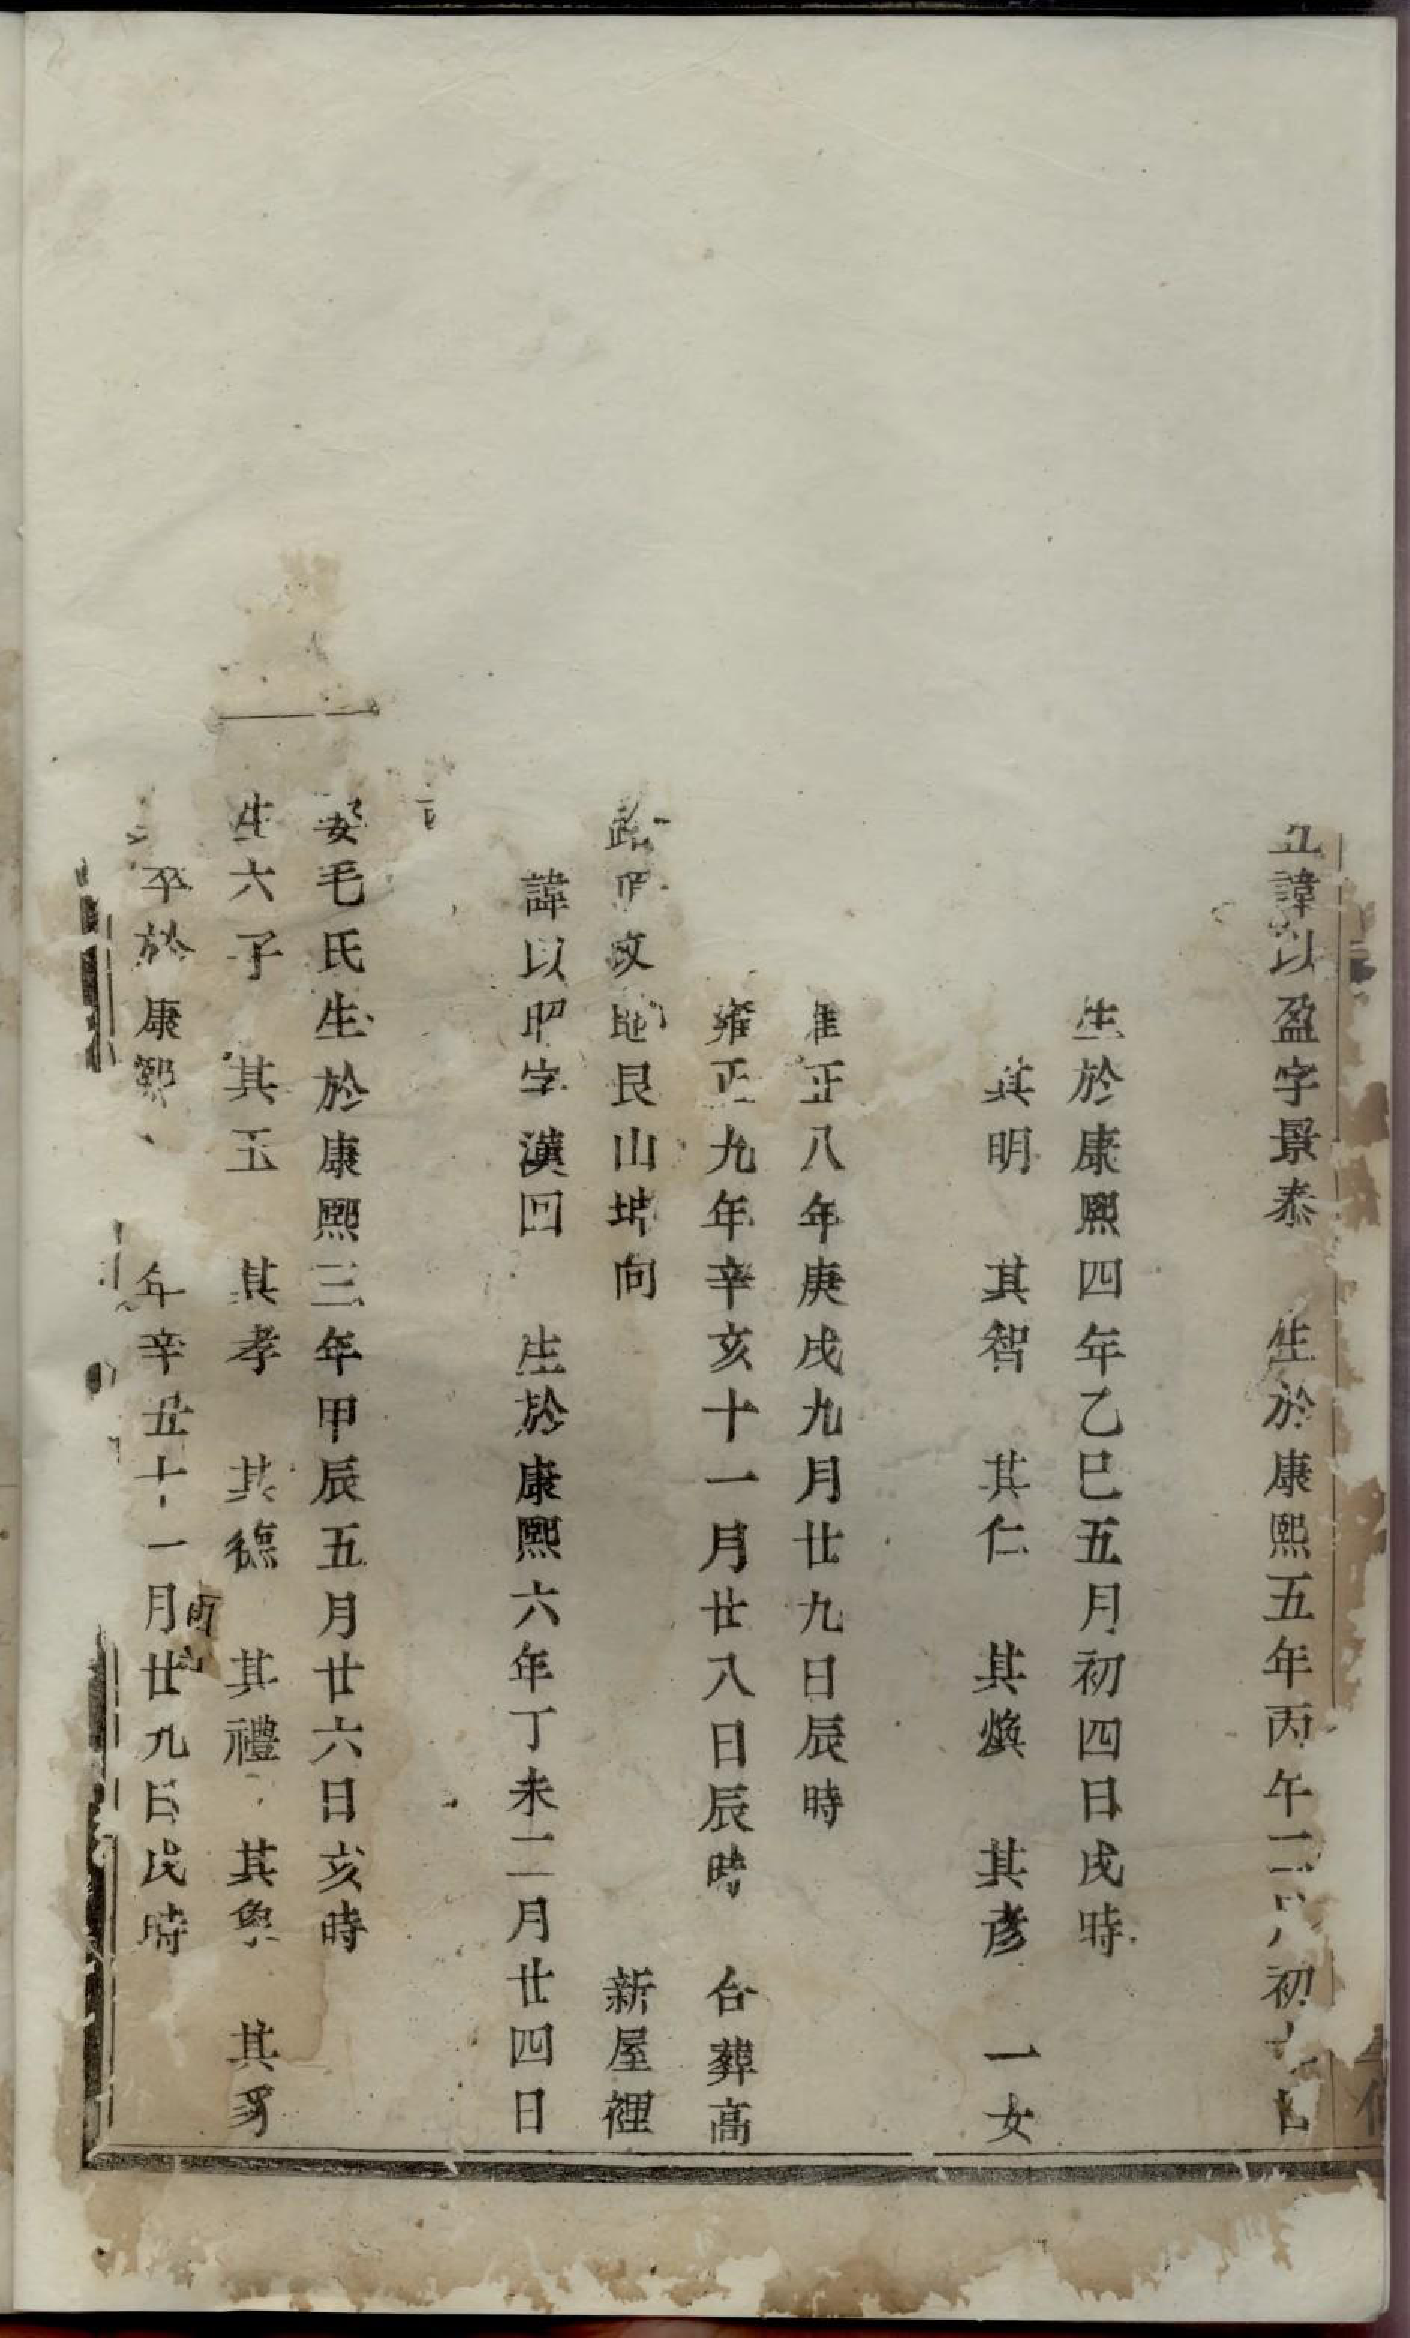 五諱以盈字景泰 生於康熙五年丙午二月初 日
生於康熙四年乙巳五月初四日戌時
其明 其智 其仁 其煥 其彥 一女
雍正八年庚戌九月廿九日辰時
雍正九年辛亥十一月廿八日辰時 合葬高
路 艮山坤向 新屋裡
諱以昭字漢回 生於康熙六年丁未二月廿四日
娶毛氏生於康熙三年甲辰五月廿六日亥時
生六子 其玉 其孝 其德 其禮 其 其
卒於康熙 年辛丑十一月廿九日戌時